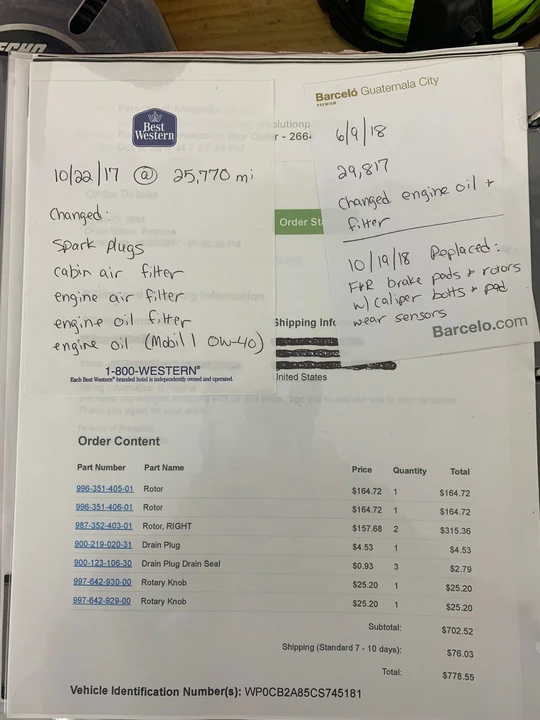 Best
Western
10/22/17 @ 25,770 mi
Changed:
Spark plugs
cabin air filter
engine air filter
engine oil filter
engine oil (Mobil 1 0W-40)
1-800-WESTERN®
Each Best Western® branded hotel is independently owned and operated.
Barceló Guatemala City
PREMIUM
6/9/18
29,817
Changed engine oil +
filter
10/19/18 Replaced:
F&R brake pads + rotors
w/ caliper bolts + pad
wear sensors
Barcelo.com
Order
Shipping
United States
Order Content
Part Number Part Name Price Quantity Total
996-351-405-01 Rotor $164.72 1 $164.72
996-351-406-01 Rotor $164.72 1 $164.72
987-352-403-01 Rotor, RIGHT $157.68 2 $315.36
900-219-020-31 Drain Plug $4.53 1 $4.53
900-123-106-30 Drain Plug Drain Seal $0.93 3 $2.79
997-642-930-00 Rotary Knob $25.20 1 $25.20
997-642-929-00 Rotary Knob $25.20 1 $25.20
Subtotal: $702.52
Shipping (Standard 7 - 10 days): $76.03
Total: $778.55
Vehicle Identification Number(s): WP0CB2A85CS745181